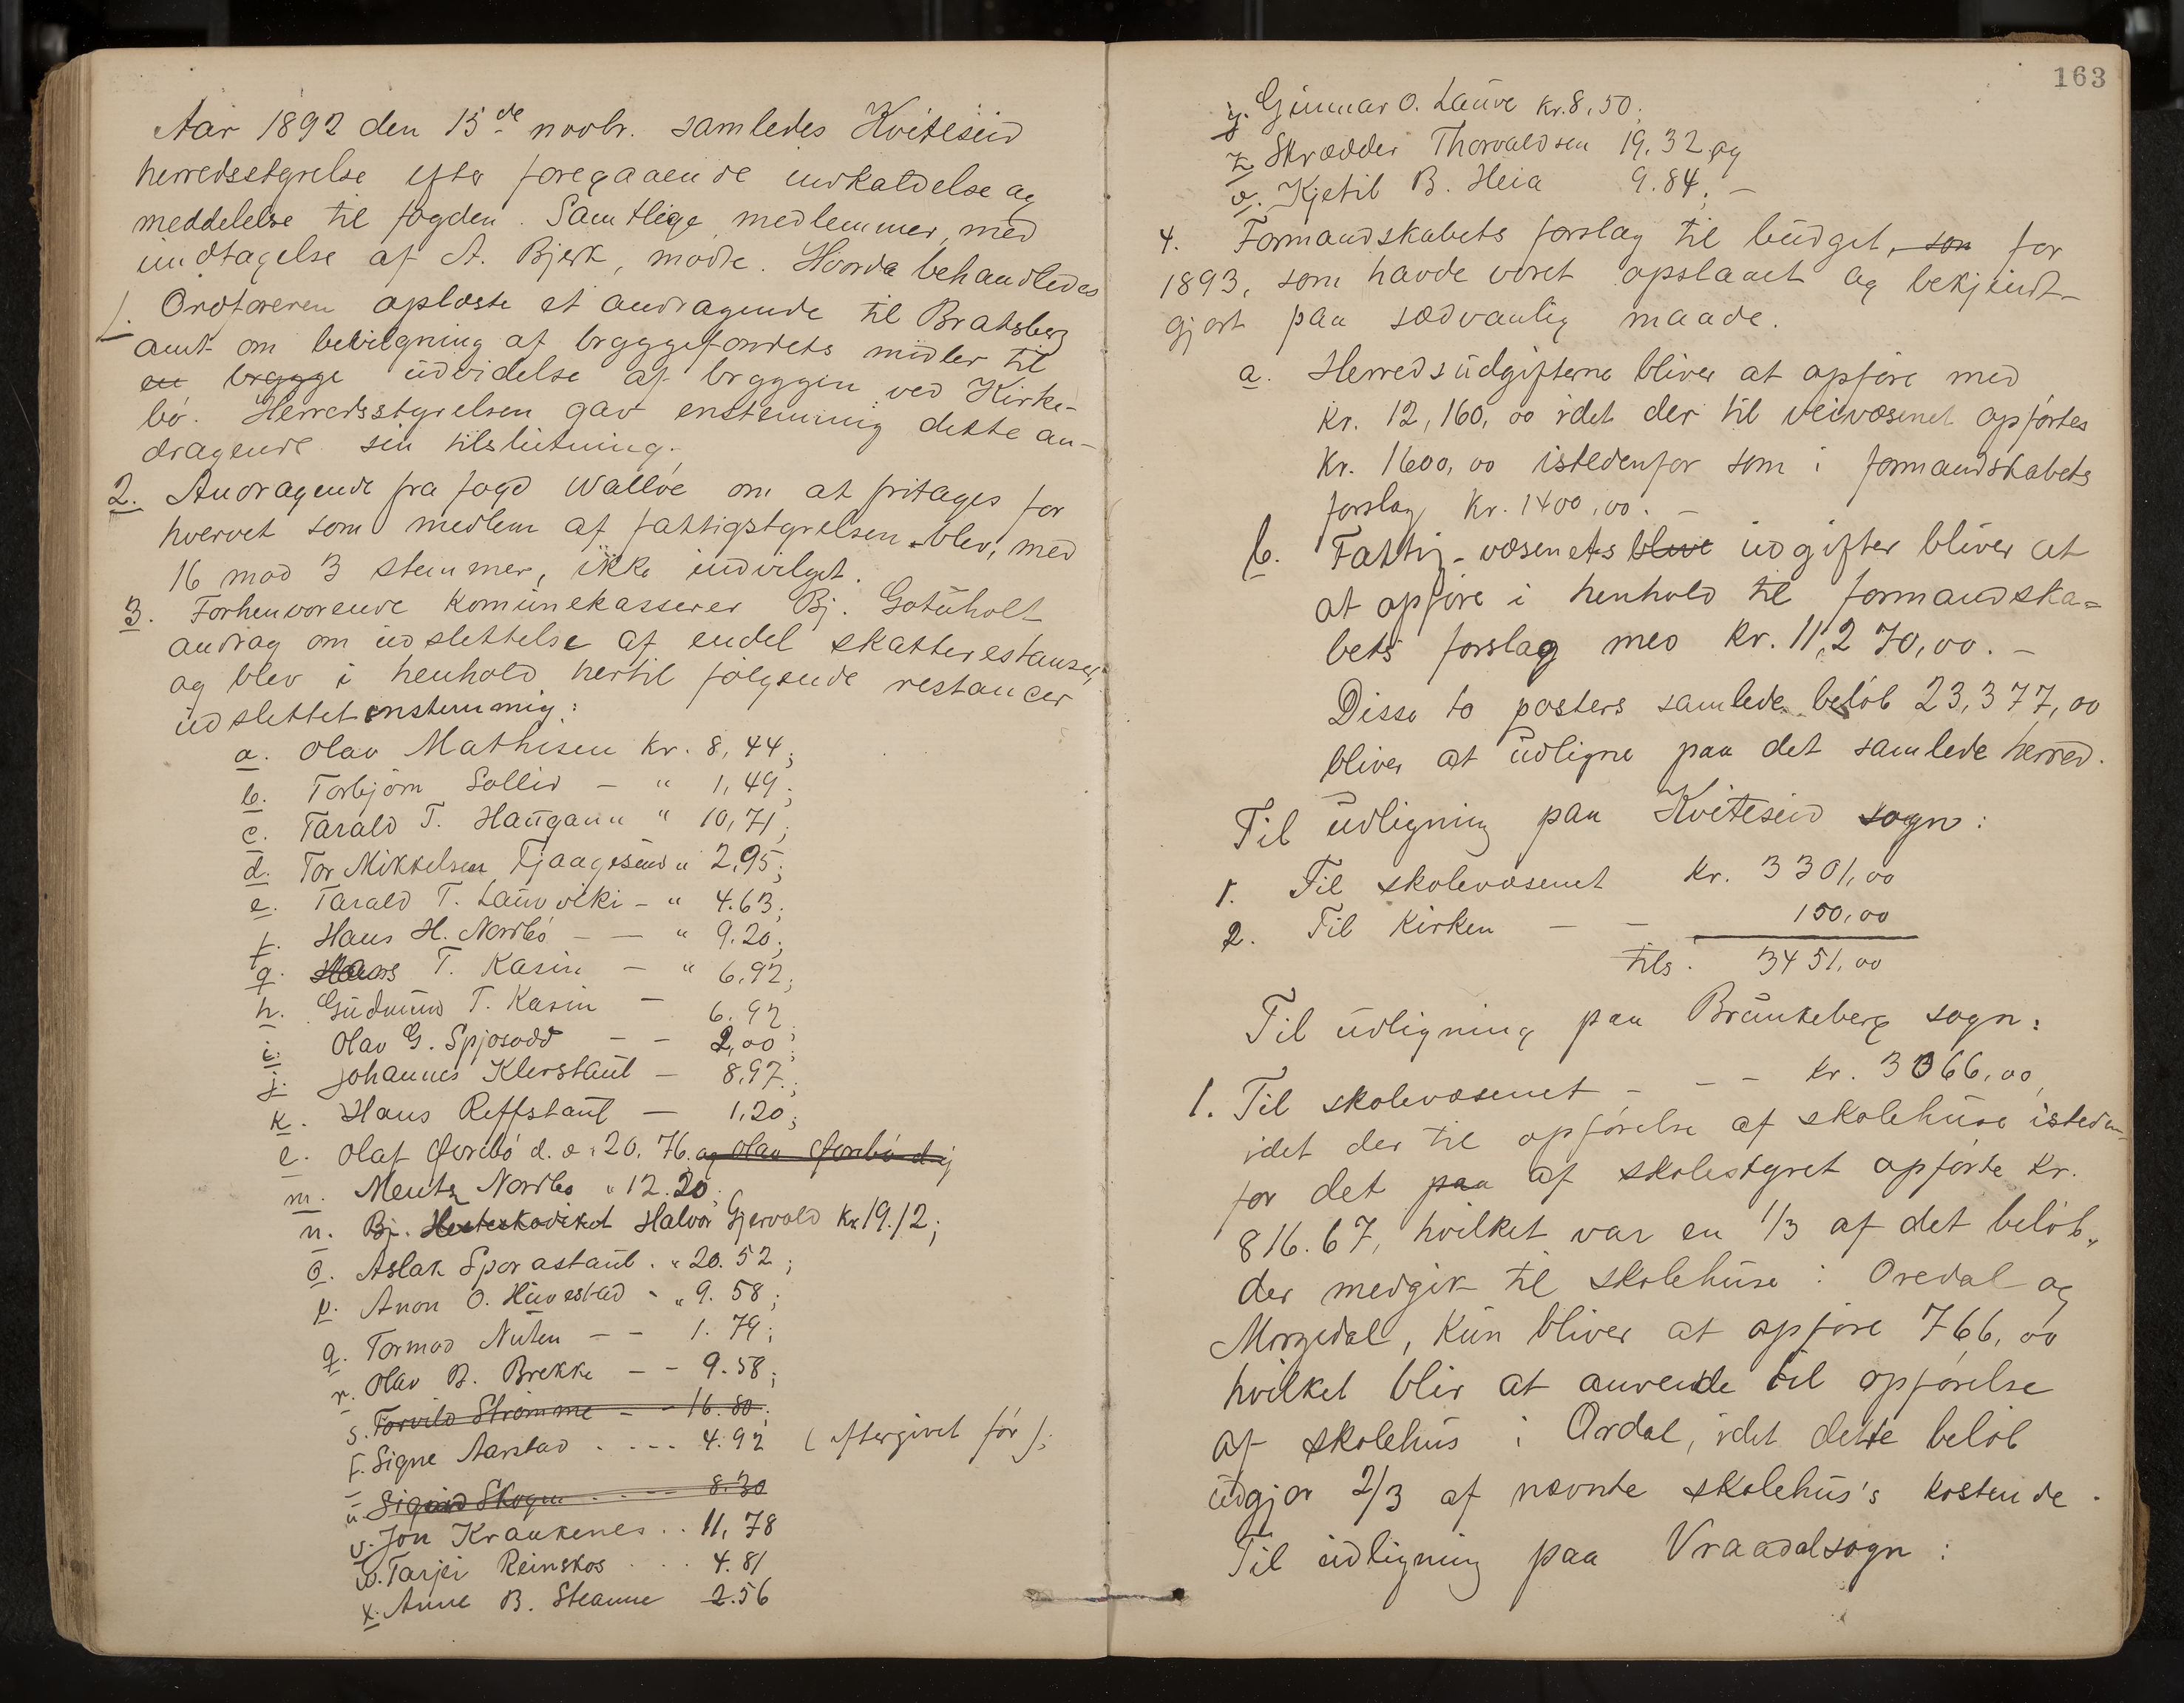 Aar 1892 den 15de novbr. samledes Kviteseid
herredsstyrelse efter foregaaende indkaldelse og
meddelelse til fogden. Samtlige medlemmer, med
undtagelse af A. Bjerk, mødte. Hvorda behandledes
1. Ordføreren oplæste et andragende til Bratsberg
amt om bevilgning af bryggefondets midler til
en brygge udvidelse af bryggen ved Kirke-
bø. Herredsstyrelsen gav enstemmig dette an-
dragende sin tilslutning.
2. Andragende fra fogd Walløe om at fritages for
hvervet som medlem af fattigstyrelsen blev, med
16 mod 3 stemmer, ikke indvilget.
3. Forhenværende komunekasserer Bj. Gotuholt
andrag om udslettelse af endel skatterestanser,
og blev i henhold hertil følgende restancer
udslettet enstemmig:
a. Olav Mathisen kr. 8,44;
b. Torbjørn Sollid — " 1,49;
c. Tarald T. Haugann " 10,71;
d. Tor Mikkelsen Fjaagesund " 2,95;
e. Tarald T. Lauvviki - " 4.63;
f. Hans H. Nordbø — — " 9.20;
g. Hans T. Kasin — " 6.92;
h. Gudmund T. Kasin — 6.92;
i. Olav G. Spjosodd — — 2,00;
j. Johannes Klerstaul — 8,97;
k. Hans Reffstaul — 1,20;
l. Olaf Øverbø d. æ. 20.76. og Olav Øverbø d. y
m. Mentz Nordbø " 12.20;
n. Bj. Halvor Gjervold Kr. 19.12;
o. Aslak Sporastaul . " 20.52;
p. Anon O. Huvestad - " 9.58;
q. Tormod Nuten — — 1.79;
r. Olav B. Brekke — — 9.58;
s. Torvild Strømme — — 16.80;
t. Signe Aarstad . . . . 4.92 (eftergivet før);
u. Sigrid Skogen . . . . 8.30
v. Jon Kraakenes . . 11,78
w. Tarjei Reinskos . . . 4.81
x. Anne B. Steanne 2.56
163
y. Gunnar O. Lauve kr. 8,50;
z. Skrædder Thorvaldsen 19,32 og
æ. Kjetil B. Heia 9.84; —
4. Formandskabets forslag til budget, som for
1893, som havde været opslaaet og bekjendt-
gjort paa sædvanlig maade.
a. Herredsudgifterne bliver at opføre med
kr. 12,160,00 idet der til veivæsenet opførtes
kr. 1600,00 istedenfor som i formandskabets
forslag kr. 1400,00. —
b. Fattig-væsenets blive udgifter bliver at
at opføre i henhold til formandska=
bets forslag med kr. 11,270,00. —
Disse to posters samlede beløb 23,377,00
bliver at udligne paa det samlede herred.
Til udligning paa Kviteseid sogn:
1. Til skolevæsenet kr. 3301,00
2. Til kirken — — 150,00
tils. 3451,00
Til udligning paa Brunkeberg sogn:
1. Til skolevæsenet — — — kr. 3066,00,
idet der til opførelse af skolehuse isteden-
for det paa af skolestyret opførte kr.
816.67, hvilket var en 1/3 af det beløb,
der medgik til skolehuse i Oredal og
Morgedal, kun bliver at opføre 766,00
hvilket blir at anvende til opførelse
af skolehus i Ordal, idet dette beløb
udgjør 2/3 af nævnte skolehus's kostende.
Til udligning paa Vraadalsogn: